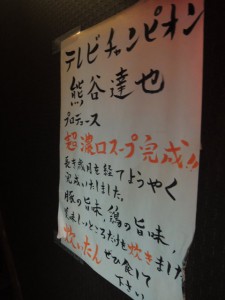 テレビチャンピオン
熊谷達也
プロデュース
超濃口スープ完成!!
長き歳月を経てようやく
完成いたしました。
豚の旨味、鶏の旨味、
美味しいところだけを炊きました
炊いたん ぜひ食して
下さい